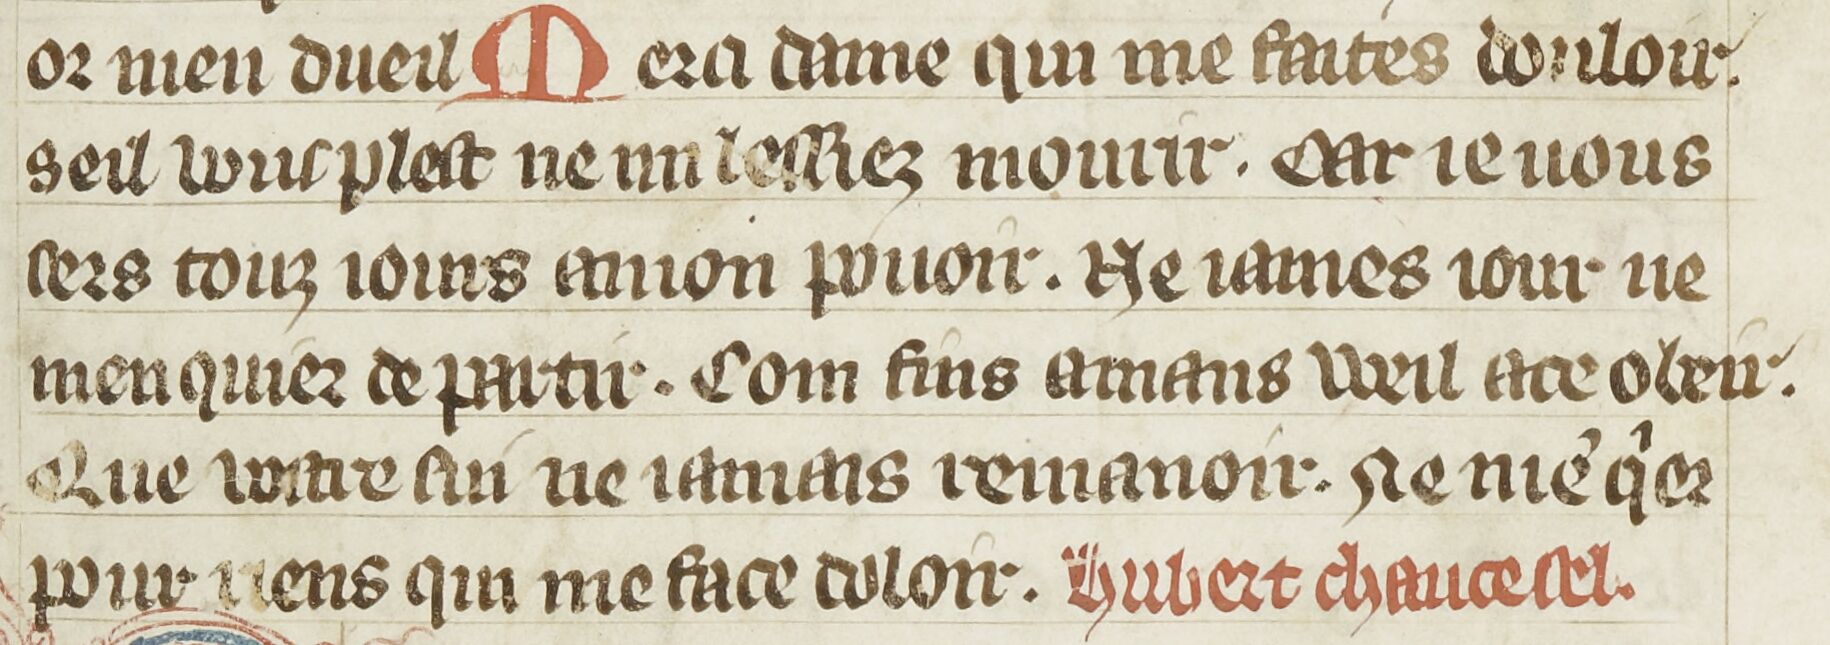 or men dueil Merci dame qui me faites douloir.
seil vous plest ne mi lessiez mourir. Car ie uous
sers touz iours amon pouoir. Ne iames iour ne
men quier de partir. Com fins amans vueil ace obeir.
Que vostre sui ne iamais remanoir. Ne me͛ q'er
pour riens qui me face doloir. hubert chaucesel.